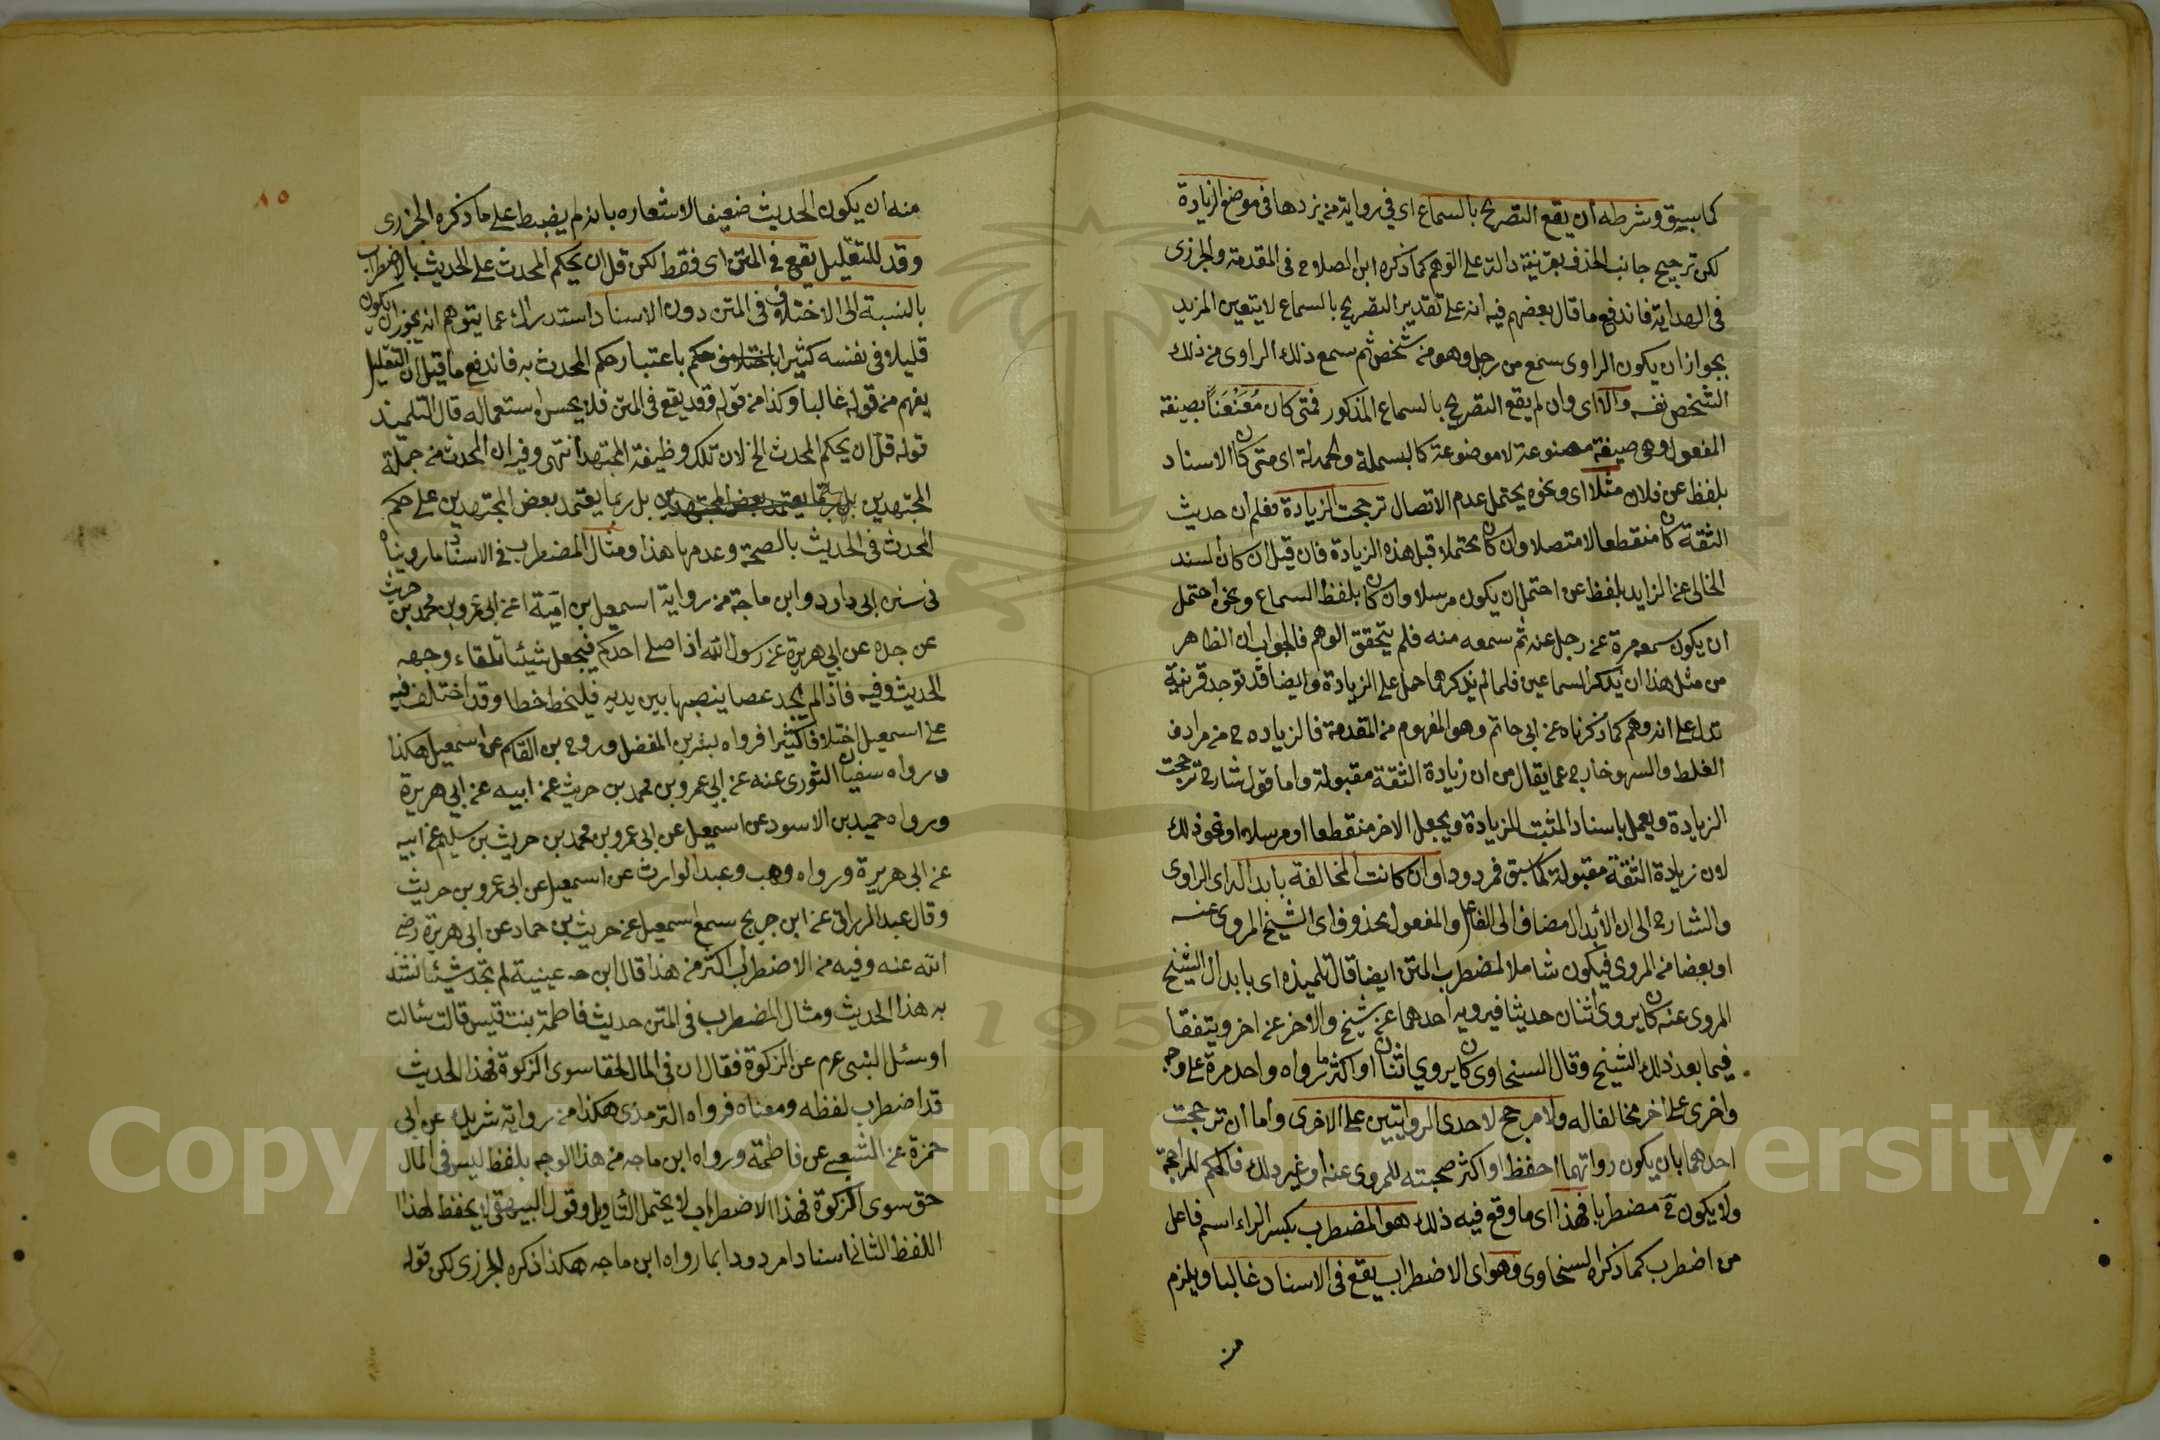 كما سيق وشرطه أن يقع التصريح بالسماع اى في رواية من يزدها في موضع الزيادة
لكن ترجيح جانب الحذف بقرينة دالة على الوهم كما ذكره ابن الصلاح فى المقدمة والجزرى
فى الهداية فاندفع ما قال بعضهم فيه انه على تقدير التصريح بالسماع لا يتعين المزيد
بجواز ان يكون الراوى سمع من رجل وهو من شخص ثم سمع ذلك الراوى من ذلك
الشخص نفسه والا اى وان لم يقع التصريح بالسماع المذكور فمتى كان مُعَنْعَنًا بصيغة
المفعول وهى صيغة مصنوعة لا موضوعة كالبسملة والحمدلة اى متى كان الاسناد
بلفظ عن فلان مثلا اى ونحوه يحتمل عدم الاتصال ترجحت الزيادة فعلم أن حديث
الثقة كان منقطعا لا متصلا وان كان محتملا قبل هذه الزيادة فان قيل ان كان السند
الخالى عن الزايد بلفظ عن احتمل ان يكون مرسلا وان كان بلفظ السماع ونحوه احتمل
ان يكون سمعه مرة عن رجل عنه ثم سمعه منه فلم يتحقق الوهم فالجواب ان الظاهر
من مثل هذا ان يذكر السماعين فلما لم يذكرهما حمل على الزيادة وايضا قد توجد قرينة
تدل على انه وهم كما ذكرناه عن ابى حاتم وهو المفهوم من المقدمة فالزياده ح من مرادف
الغلط والسهو خارج عما يقال من ان زيادة الثقة مقبولة واما قول شارح ترجحت
الزيادة ويعمل باسناد المثبت للزيادة ويجعل الاخر منقطعا او مرسلا او نحو ذلك
لان زيادة الثقة مقبولة كما سبق فمردود او ان كانت المخالفة بابداله اى الراوى
والشارح الى ان الأبدال مضاف الى الفاعل والمفعول محذوف اى الشيخ المروى عنه
او بعضا من المروى فيكون شاملا لمضطرب المتن ايضا قال تلميذه اى بابدال الشيخ
المروى عنه كان يروى اثنان حديثا فيرويه احدهما عن شيخ والاخر عن اخر ويتفقا
فيما بعد ذلك الشيخ وقال السخاوى كان يروي اثنان او اكثر ما رواه واحد مرة على وجه
واخرى على اخر مخالفا له ولا مرجح لاحدى الروايتين على الاخرى واما أن ترجحت
احدهما بان يكون رواتها احفظ او اكثر صحبته للمروى عنه او غير ذلك فالحكم للراجحة
ولا يكون ح مضطربا فهذا اى ما وقع فيه ذلك هو المضطرب بكسر الراء اسم فاعل
من اضطرب كما ذكره السخاوى وهو اى الاضطراب يقع فى الاسناد غالبا ويلزم
منه
٨٥
منه أن يكون الحديث ضعيفا لاشعاره بانه لم يضبط على ما ذكره الجزرى
وقد للتقليل يقع في المتن اى فقط لكن قل ان يحكم المحدث على الحديث بالاضطراب
بالنسبة الى الاختلاف فى المتن دون الاسناد استدراك عما يتوهم انه يجوز ان يكون
قليلا فى نفسه كثيرا باختلاف حكم باعتبار حكم المحدث به فاندفع ما قيل ان التقليل
يفهم من قوله غالبا وكذا من قوله وقد يقع فى المتن فلا يحسن استعماله قال التلميذ
قوله قل ان يحكم المحدث الخ لان تلك وظيفة المجتهد انتهى وفيه ان المحدث من جملة
المجتهدين بل ربما يعتمد بعض المجتهدين بل ربما يعتمد بعض المجتهدين على حكم
المحدث فى الحديث بالصحة وعدمها هذا ومثال المضطرب فى الاسناد ما رويناه
فى سنن ابى داود وابن ماجة من رواية اسمعيل بن امية عن ابى عمرو بن محمد بن حريث
عن جده عن ابي هريرة عن رسول الله اذا صلى احدكم فيجعل شيئا تلقاء وجهه
الحديث وفيه فاذا لم يجد عصا ينصبها بين يديه فليخط خطا وقد اختلف فيه
على اسمعيل اختلافا كثيرا فرواه بشر بن المفضل وروح بن القاسم عن اسمعيل هكذا
ورواه سفيان الثورى عنه عن ابى عمرو بن محمد بن حريث عن ابيه عن ابي هريرة
ورواه حميد بن الاسود عن اسمعيل عن ابى عمرو بن محمد بن حريث بن سليم عن ابيه
عن ابى هريرة ورواه وهب وعبد الوارث عن اسمعيل عن ابى عمرو بن حريث
وقال عبد الرزاق عن ابن جريج سمع اسمعيل عن حريث بن حماد عن ابى هريرة رضى
الله عنه وفيه من الاضطراب اكثر من هذا قال ابن عيينة لم نجد شيئا نشد
به هذا الحديث ومثال المضطرب فى المتن حديث فاطمة بنت قيس قالت سالت
او سئل النبى عم عن الزكوة فقال ان فى المال لحقا سوى الزكوة فهذا الحديث
قد اضطرب لفظه ومعناه فرواه الترمذى هكذا من رواية شريك عن ابى
حمزة عن الشعبى عن فاطمة ورواه ابن ماجه من هذا الوجه بلفظ ليس فى المال
حق سوى الزكوة فهذا الاضطراب لا يحتمل التأويل وقول البيهقى لا يحفظ لهذا
اللفظ الثانى اسنادا مردود بما رواه ابن ماجه هكذا ذكره الجزرى لكن قوله
Copyright © King Saud University
1957